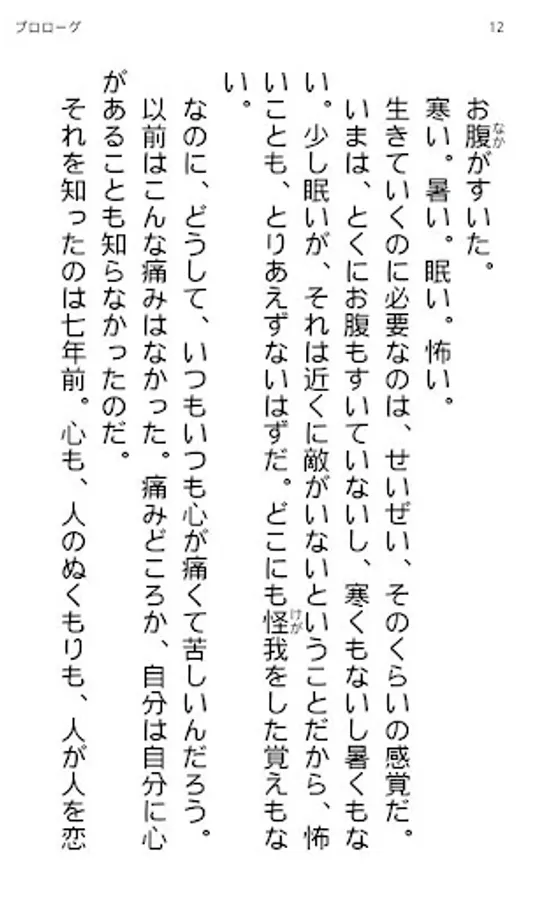 プロローグ
12
お腹がすいた。
なか
寒い。暑い。眠い。怖い。
生きていくのに必要なのは、せいぜい、そのくらいの感覚だ。
いまは、とくにお腹もすいていないし、寒くもないし暑くもな
い。少し眠いが、それは近くに敵がいないということだから、怖
いことも、とりあえずないはずだ。どこにも怪我をした覚えもな
けが
い。
なのに、どうして、いつもいつも心が痛くて苦しいんだろう。
以前はこんな痛みはなかった。痛みどころか、自分は自分に心
があることも知らなかったのだ。
それを知ったのは七年前。心も、人のぬくもりも、人が人を恋